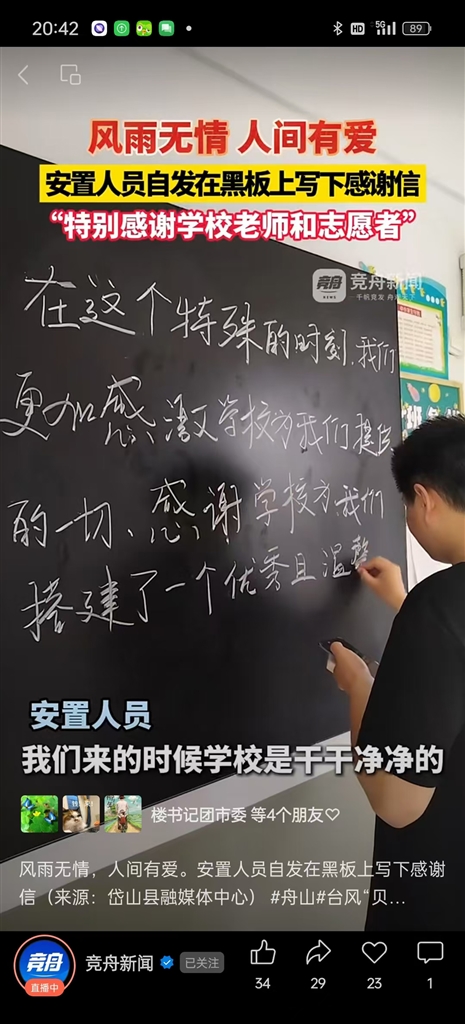 20:42
HD
5G
89
风雨无情 人间有爱
安置人员自发在黑板上写下感谢信
“特别感谢学校老师和志愿者”
竞舟新闻
NEWS
在这个特殊的时刻,我们
更加感激学校为我们提供
的一切、感谢学校为我们
搭建了一个优秀且温馨
安置人员
我们来的时候学校是干干净净的
楼书记团市委 等4个朋友♡
风雨无情,人间有爱。安置人员自发在黑板上写下感谢
信(来源:岱山县融媒体中心) #舟山#台风“贝...
竞舟
直播中
竞舟新闻
已关注
34
29
23
1